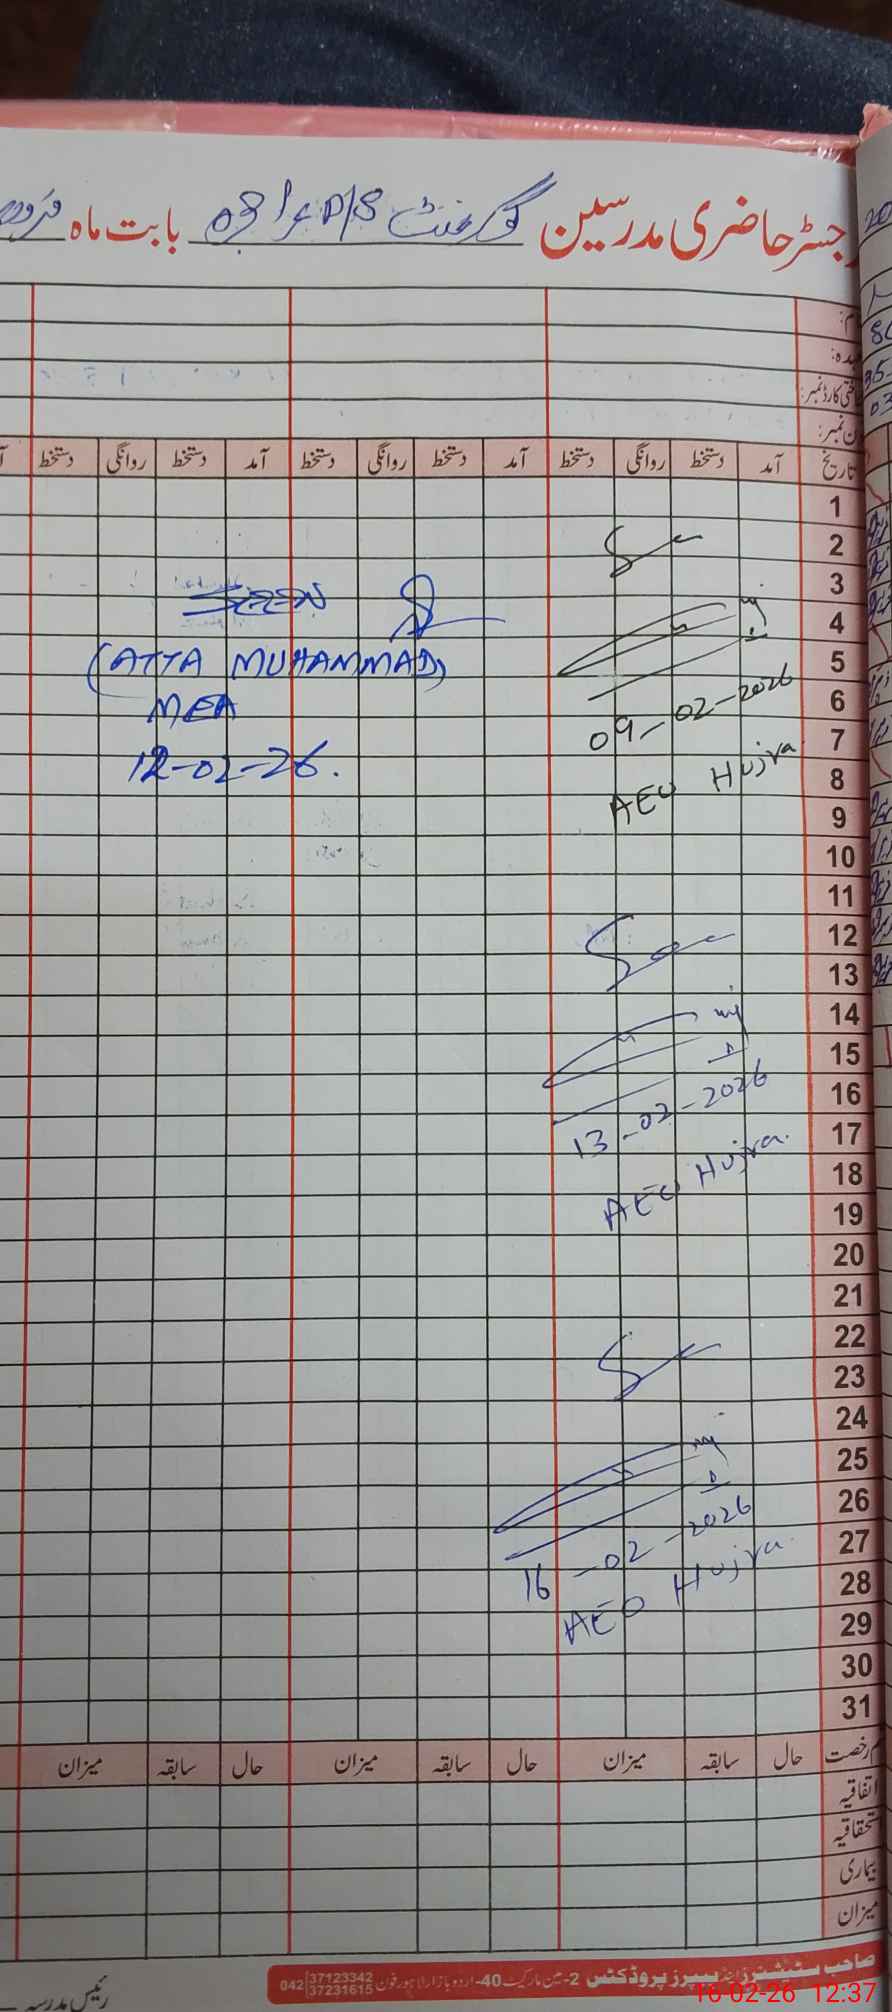 رجسٹر حاضری مدرسین گورنمنٹ P/S بابت ماہ
تاریخ آمد دستخط روانگی دستخط آمد دستخط روانگی دستخط آمد دستخط روانگی دستخط
1
2
3
4
5
6
7
8
9
10
11
12
13
14
15
16
17
18
19
20
21
22
23
24
25
26
27
28
29
30
31
09-02-2026
AEO Hujra
SEEN
(ATTA MUHAMMAD)
MEA
12-02-26.
13-02-2026
AEO Hujra.
16-02-2026
AEO Hujra.
رخصت حال سابقہ میزان حال سابقہ میزان حال سابقہ میزان
اتفاقیہ
استحقاقیہ
بیماری
میزان
صاحب سٹیشنرز اینڈ پیپرز پروڈکٹس 2-مین مارکیٹ 40-اردو بازار لاہور فون 042
37123342
37231615
رئیس مدرسہ
16-02-26 12:37